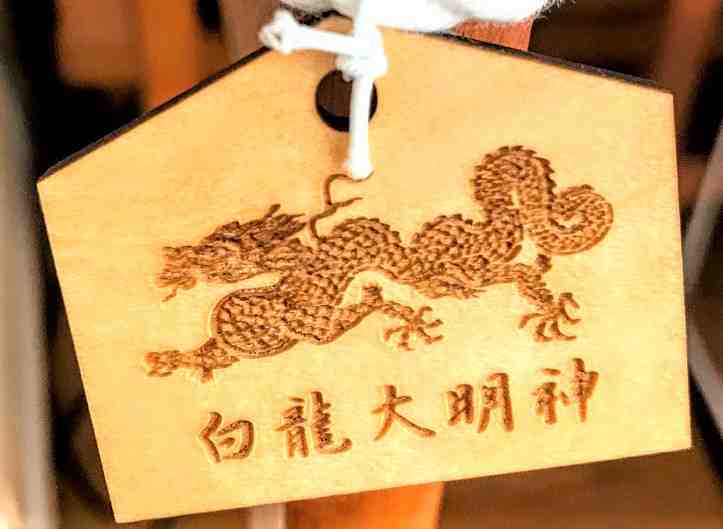 白龍大明神